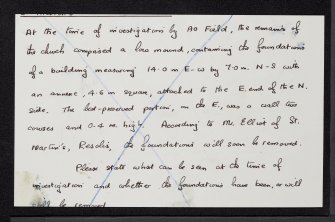 At the time of investigation by AO Field, the remains of
the church comprised a low mound, containing the foundations
of a building measuring 14.0m E-W by 7.0m N-S with
an annexe, 4.6m square, attached to the E. end of the N.
side. The best-preserved portion, on the E, was a wall two
courses and 0.4m high. According to Mr. Elliot of St.
Martin's, Resolis, the foundations will soon be removed.
Please state what can be seen at the time of
investigation and whether the foundations have been, or will
be removed